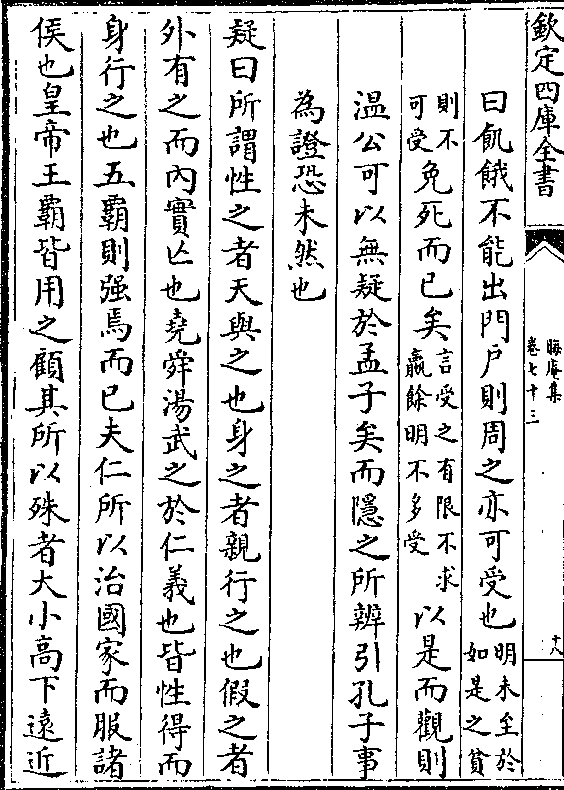 欽定四庫全書
晦庵集
卷七十三
十八
曰飢餓不能出門戶則周之亦可受也明未至於如是之貧
則不可受免死而已矣言受之有限不求贏餘明不多受以是而觀則
温公可以無疑於孟子矣而隱之所辨引孔子事
為證恐未然也
疑曰所謂性之者天與之也身之者親行之也假之者
外有之而內實亡也堯舜湯武之於仁義也皆性得而
身行之也五霸則强焉而已夫仁所以治國家而服諸
侯也皇帝王霸皆用之顧其所以殊者大小高下遠近